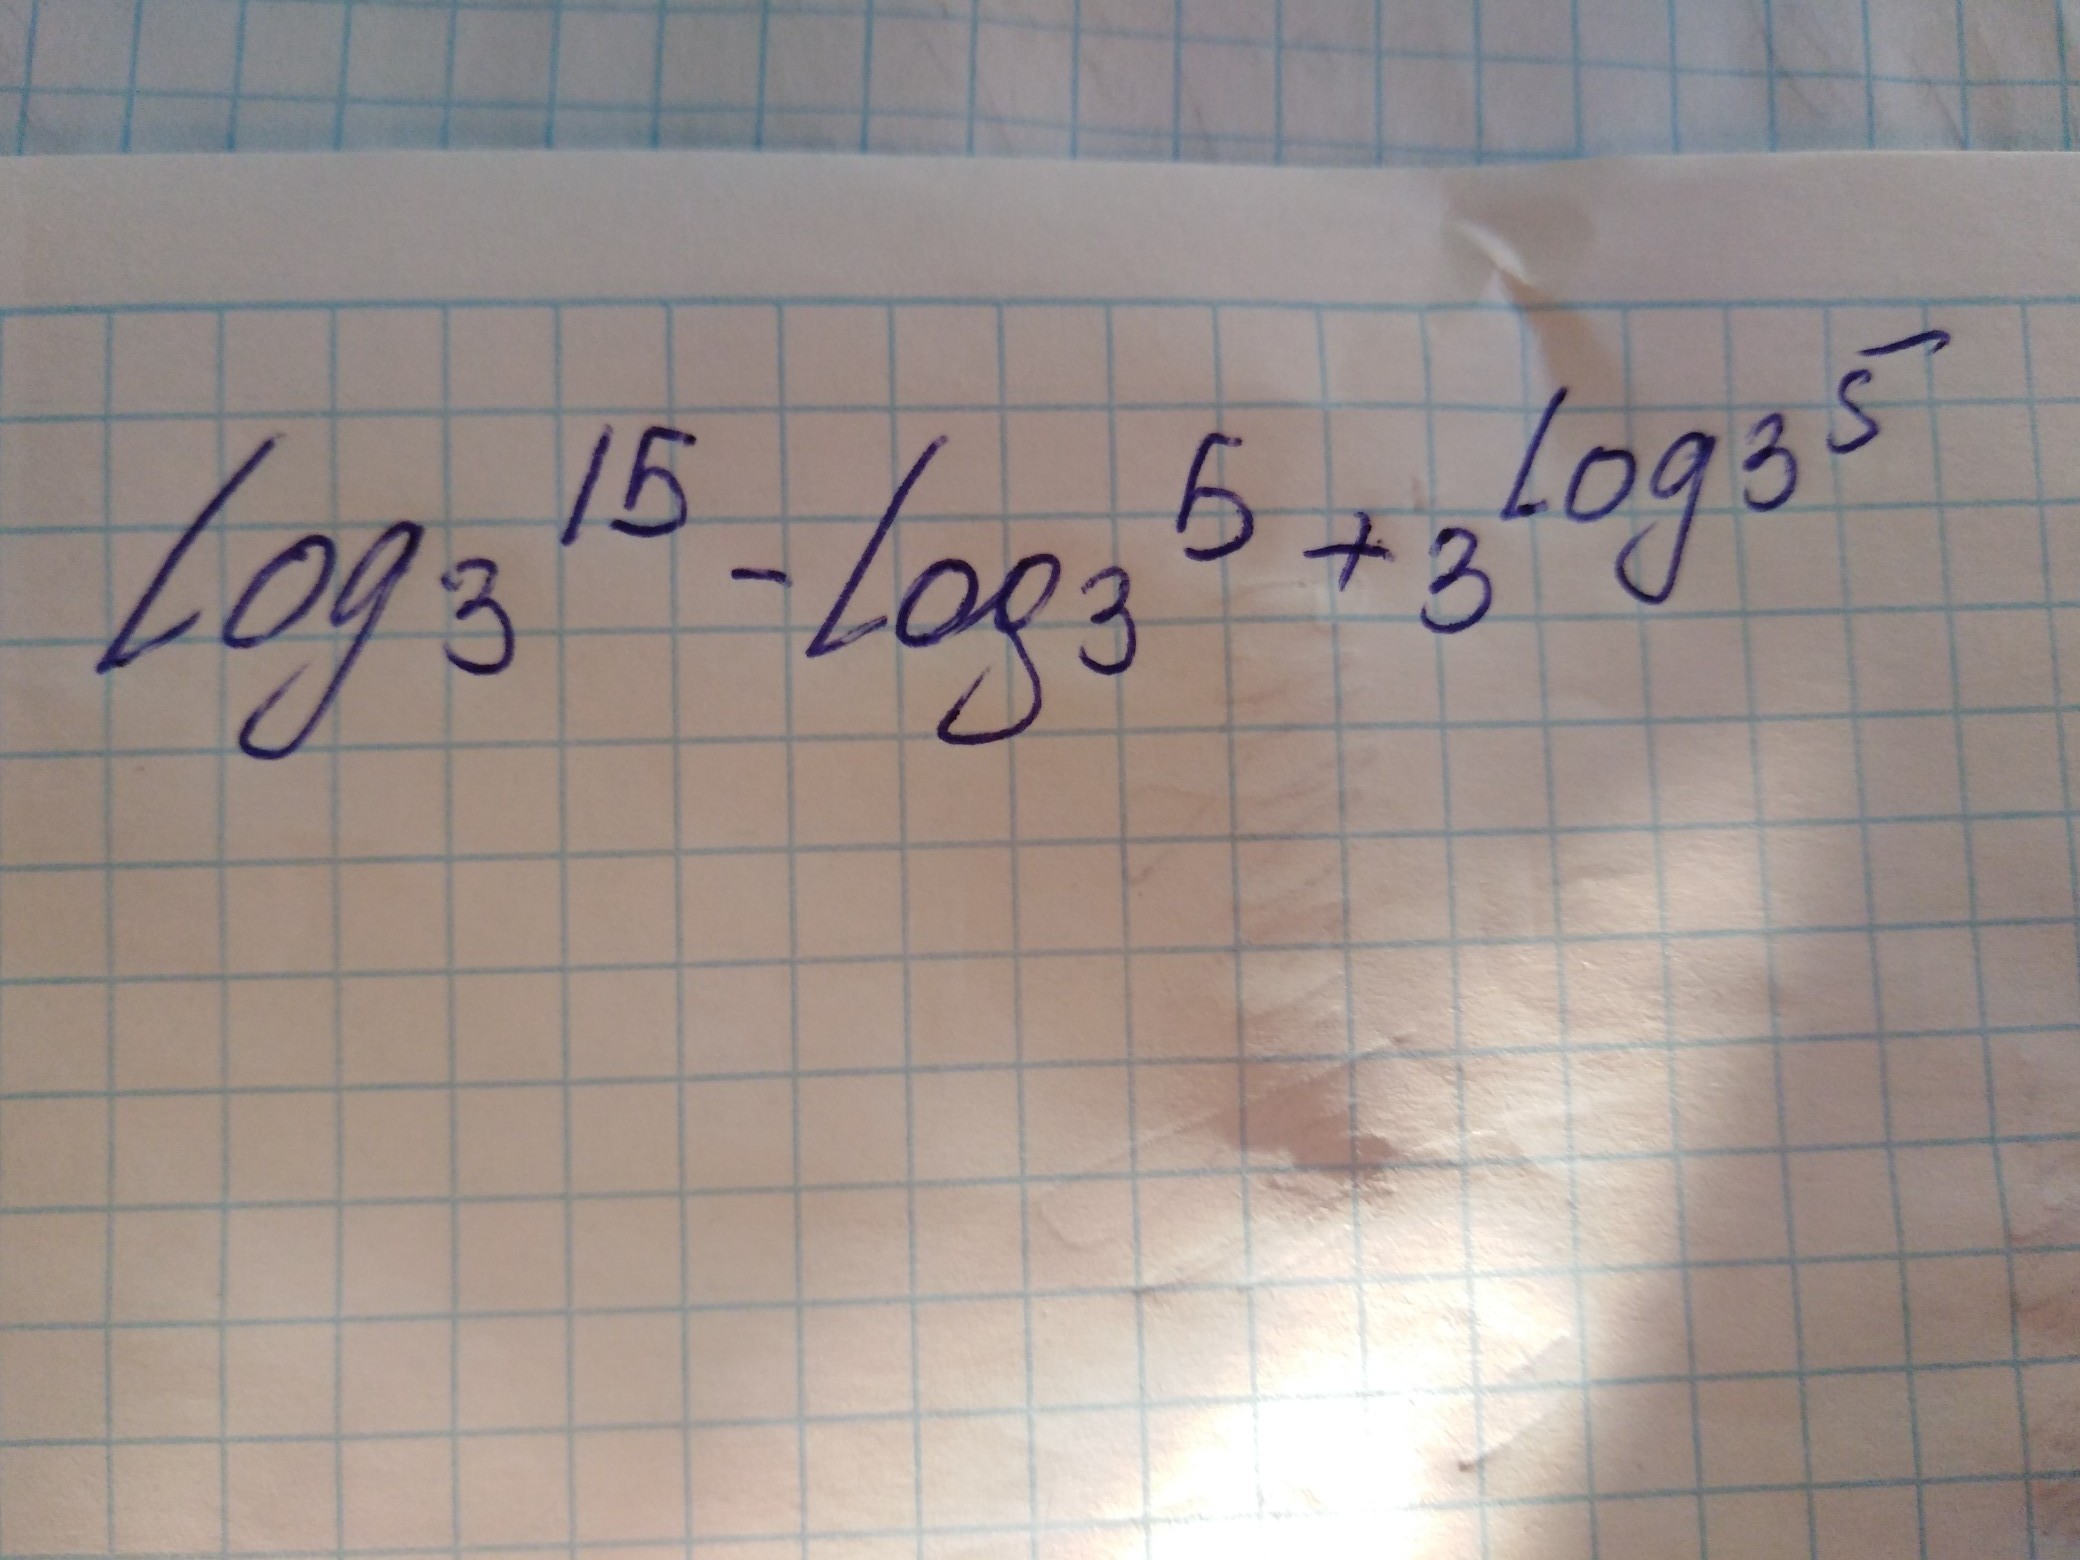 log₃ 15 - log₃ 5 + 3^(log₃ 5)